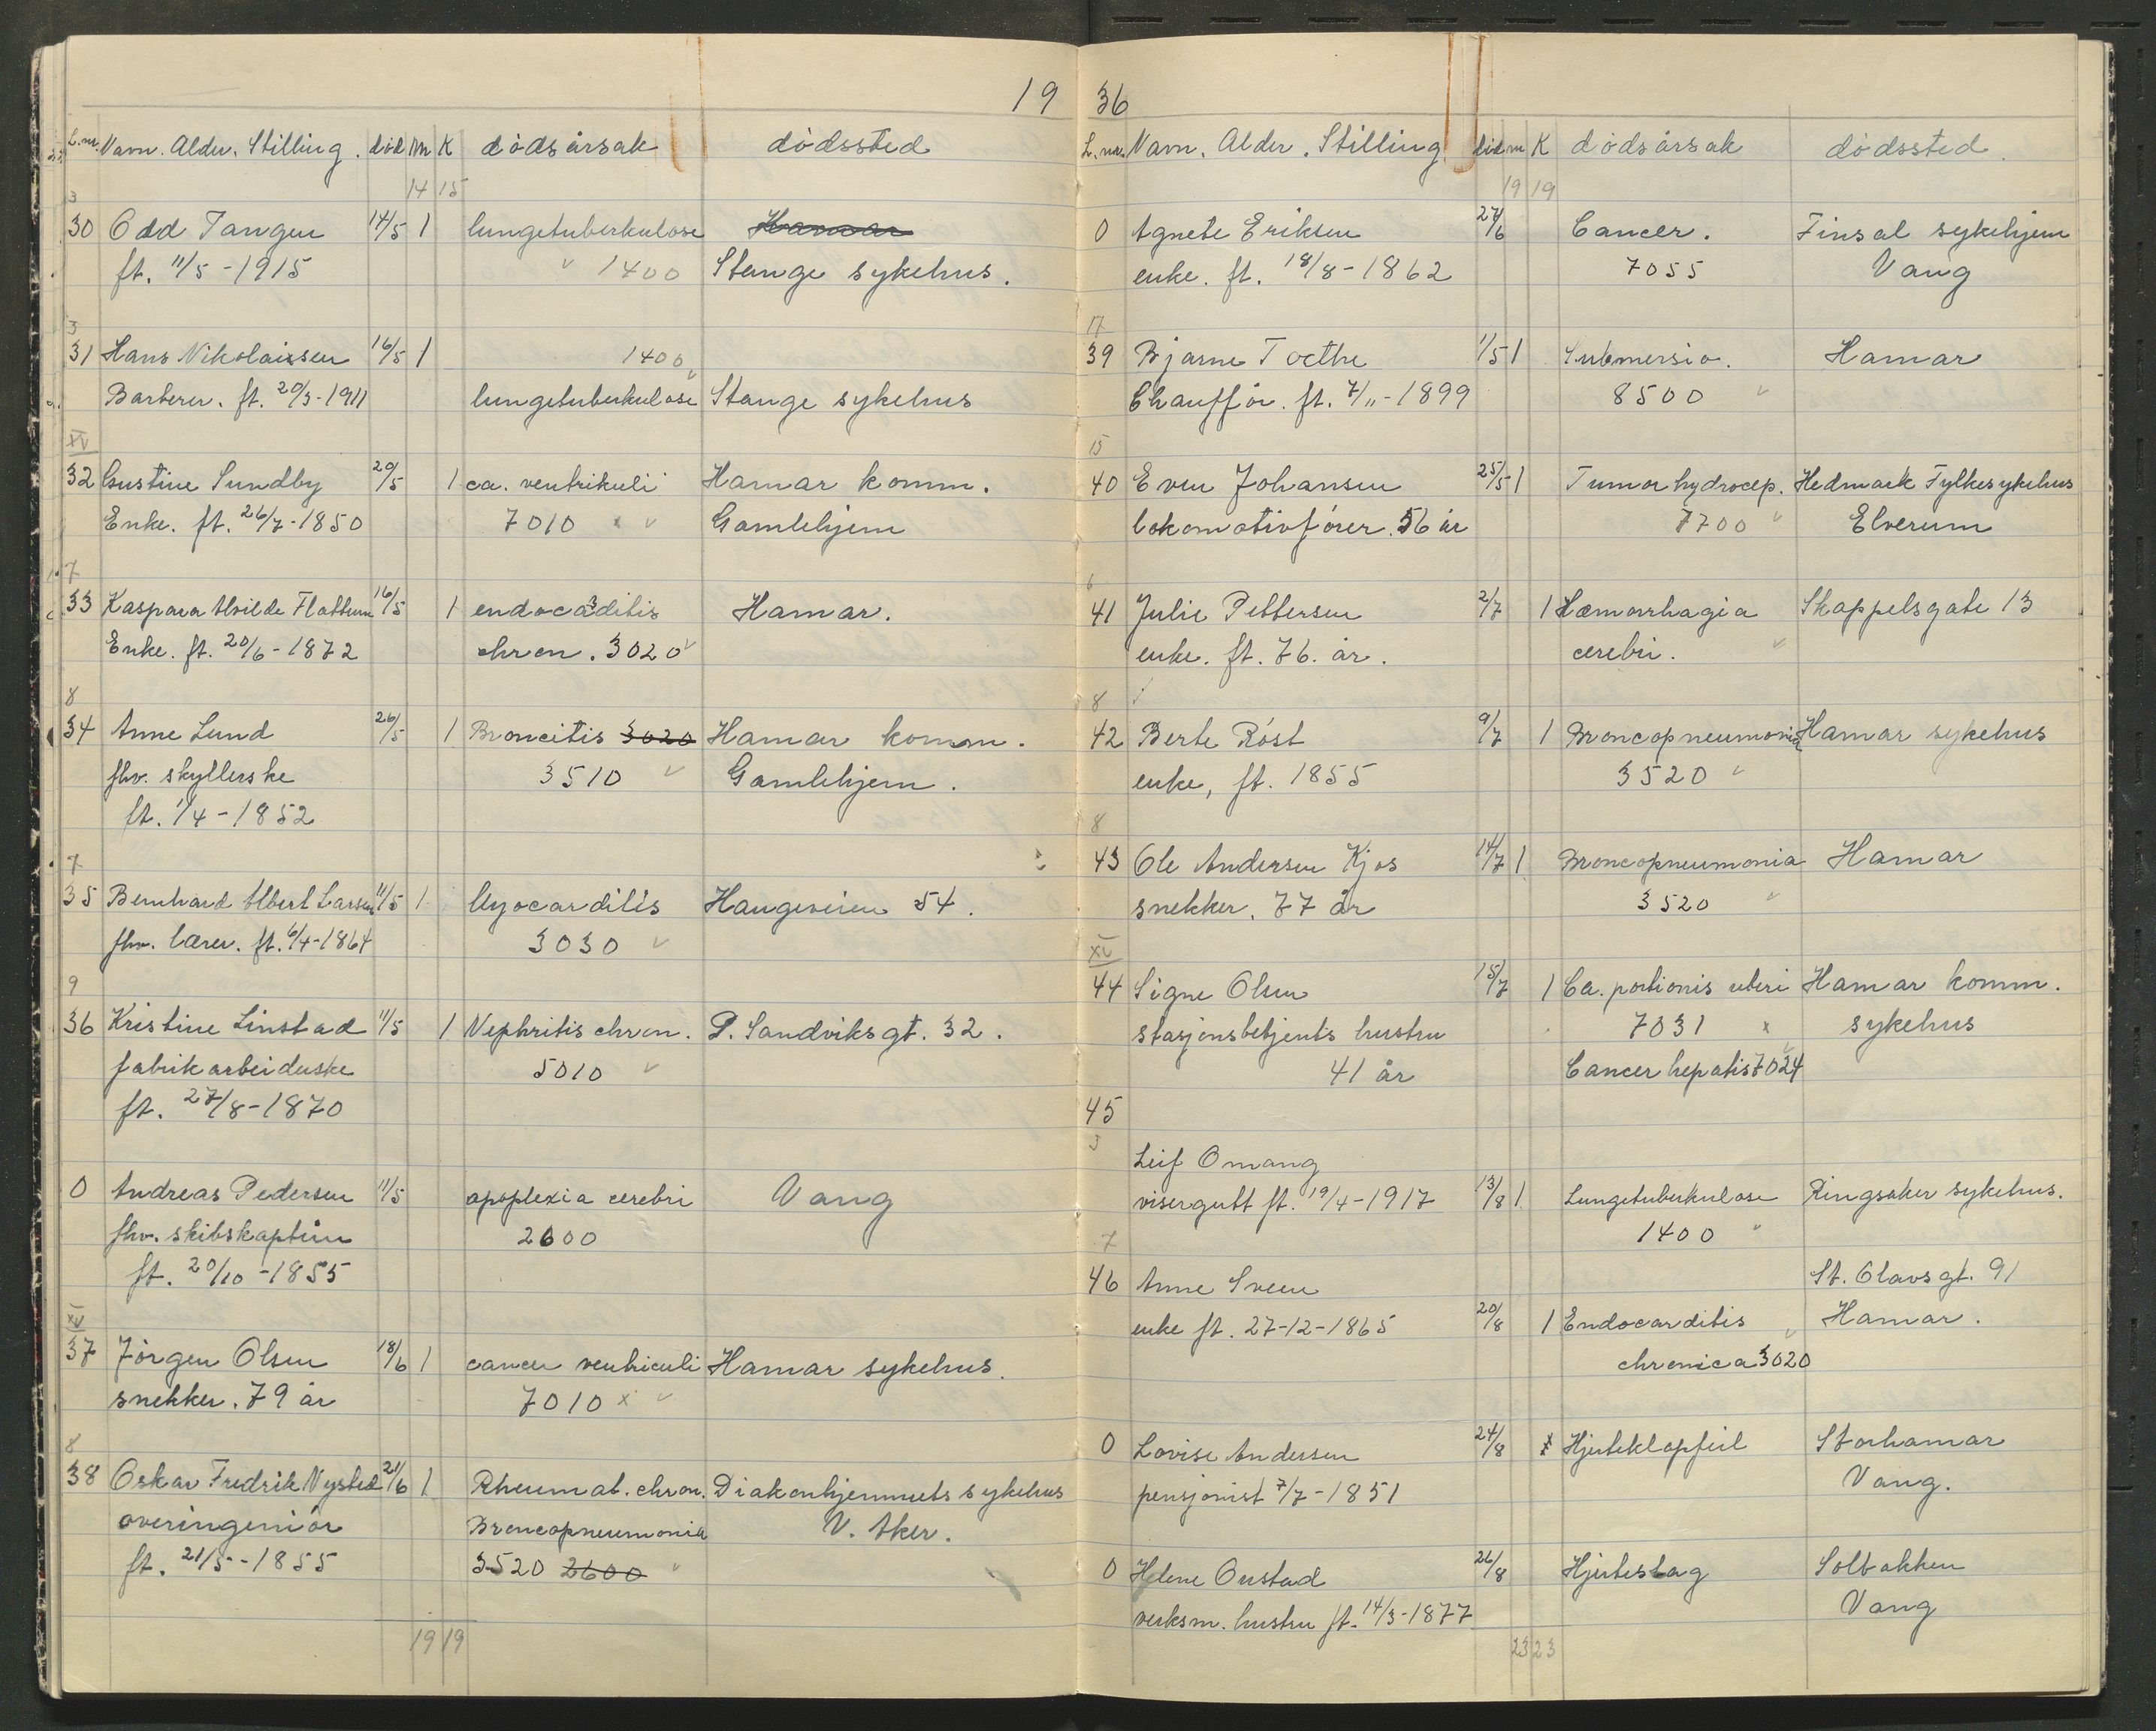 19 36
L.nr. Navn. Alder. Stilling. død M K dødsårsak dødssted
14 15
3
30 Odd Tangen 14/5 1 lungetuberkulose Hamar
ft. 11/5-1915 1400 Stange sykehus.
3
31 Hans Nikolaissen 16/5 1 1400
Barberer. ft. 20/3-1911 lungetuberkulose Stange sykehus
XV
32 Gustine Sundby 20/5 1 ca. ventrikuli Hamar komm.
Enke. ft. 26/7-1850 7010 x Gamlehjem
7
33 Kaspara Alvilde Flattum 16/5 1 endocarditis Hamar.
Enke. ft. 20/6-1872 chron. 3020
8
34 Anne Lund 26/5 1 Broncitis 3020 Hamar komm.
fhv. skyllerske 3510 Gamlehjem.
ft. 1/4-1852
7
35 Bernhard Albert Larsen 11/5 1 Myocarditis Haugeveien 54.
fhv. lærer. ft. 6/4-1864 3030
9
36 Kristine Linstad 11/5 1 Nephritis chron. P. Sandviksgt. 32.
fabrikarbeiderske 5010
ft. 27/8-1870
0 Andreas Pedersen 11/5 apoplexia cerebri Vang
fhv. skibskaptein 2600
ft. 20/10-1855
XV
37 Jörgen Olsen 18/6 1 cancer ventriculi Hamar sykehus.
snekker. 79 år 7010 x
8
38 Oskar Fredrik Nysted 21/6 1 Rheumat. chron. Diakonhjemmets sykehus
overingeniör Broncopneumonia V. Aker.
ft. 21/5-1855 3520 2600
19 19
L.nr. Navn. Alder. Stilling død m K dødsårsak dødssted.
19 19
0 Agnete Eriksen 27/6 Cancer. Finsal sykehjem
enke. ft. 18/8-1862 7055 Vang
17
39 Bjarne Toethe 1/5 1 Submersio. Hamar
Chaufför. ft. 7/11-1899 8500
15
40 Even Johansen 25/5 1 Tumor hydrocep. Hedmark Fylkesykehus
lokomotivförer. 56 år 7700 Elverum
6
41 Julie Pettersen 2/7 1 Hæmorrhagia Skappelsgate 13
enke. ft. 76. år. cerebri.
8
42 Berte Röst 9/7 1 Broncopneumonia Hamar sykehus
enke, ft. 1855 3520
8
43 Ole Andersen Kjos 14/7 1 Broncopneumonia Hamar
snekker. 77 år 3520
XV
44 Signe Olsen 15/7 1 Ca. portionis uteri Hamar komm.
stasjonsbetjents hustru 7031 x sykehus
41 år Cancer hepatis 7024
45
3
Leif Omang
visergutt ft. 19/4-1917 13/8 1 Lungetuberkulose Ringsaker sykehus.
1400
7
St. Olavsgt. 91
46 Anne Sveen
enke ft. 27-12-1865 20/8 1 Endocarditis Hamar.
chronica 3020
0 Lovise Andersen 24/8 Hjerteklapfeil Storhamar
pensjonist 7/7-1851 Vang.
0 Helene Onstad 26/8 Hjerteslag Solbakken
verksm. hustru ft. 14/3-1877 Vang
23 23